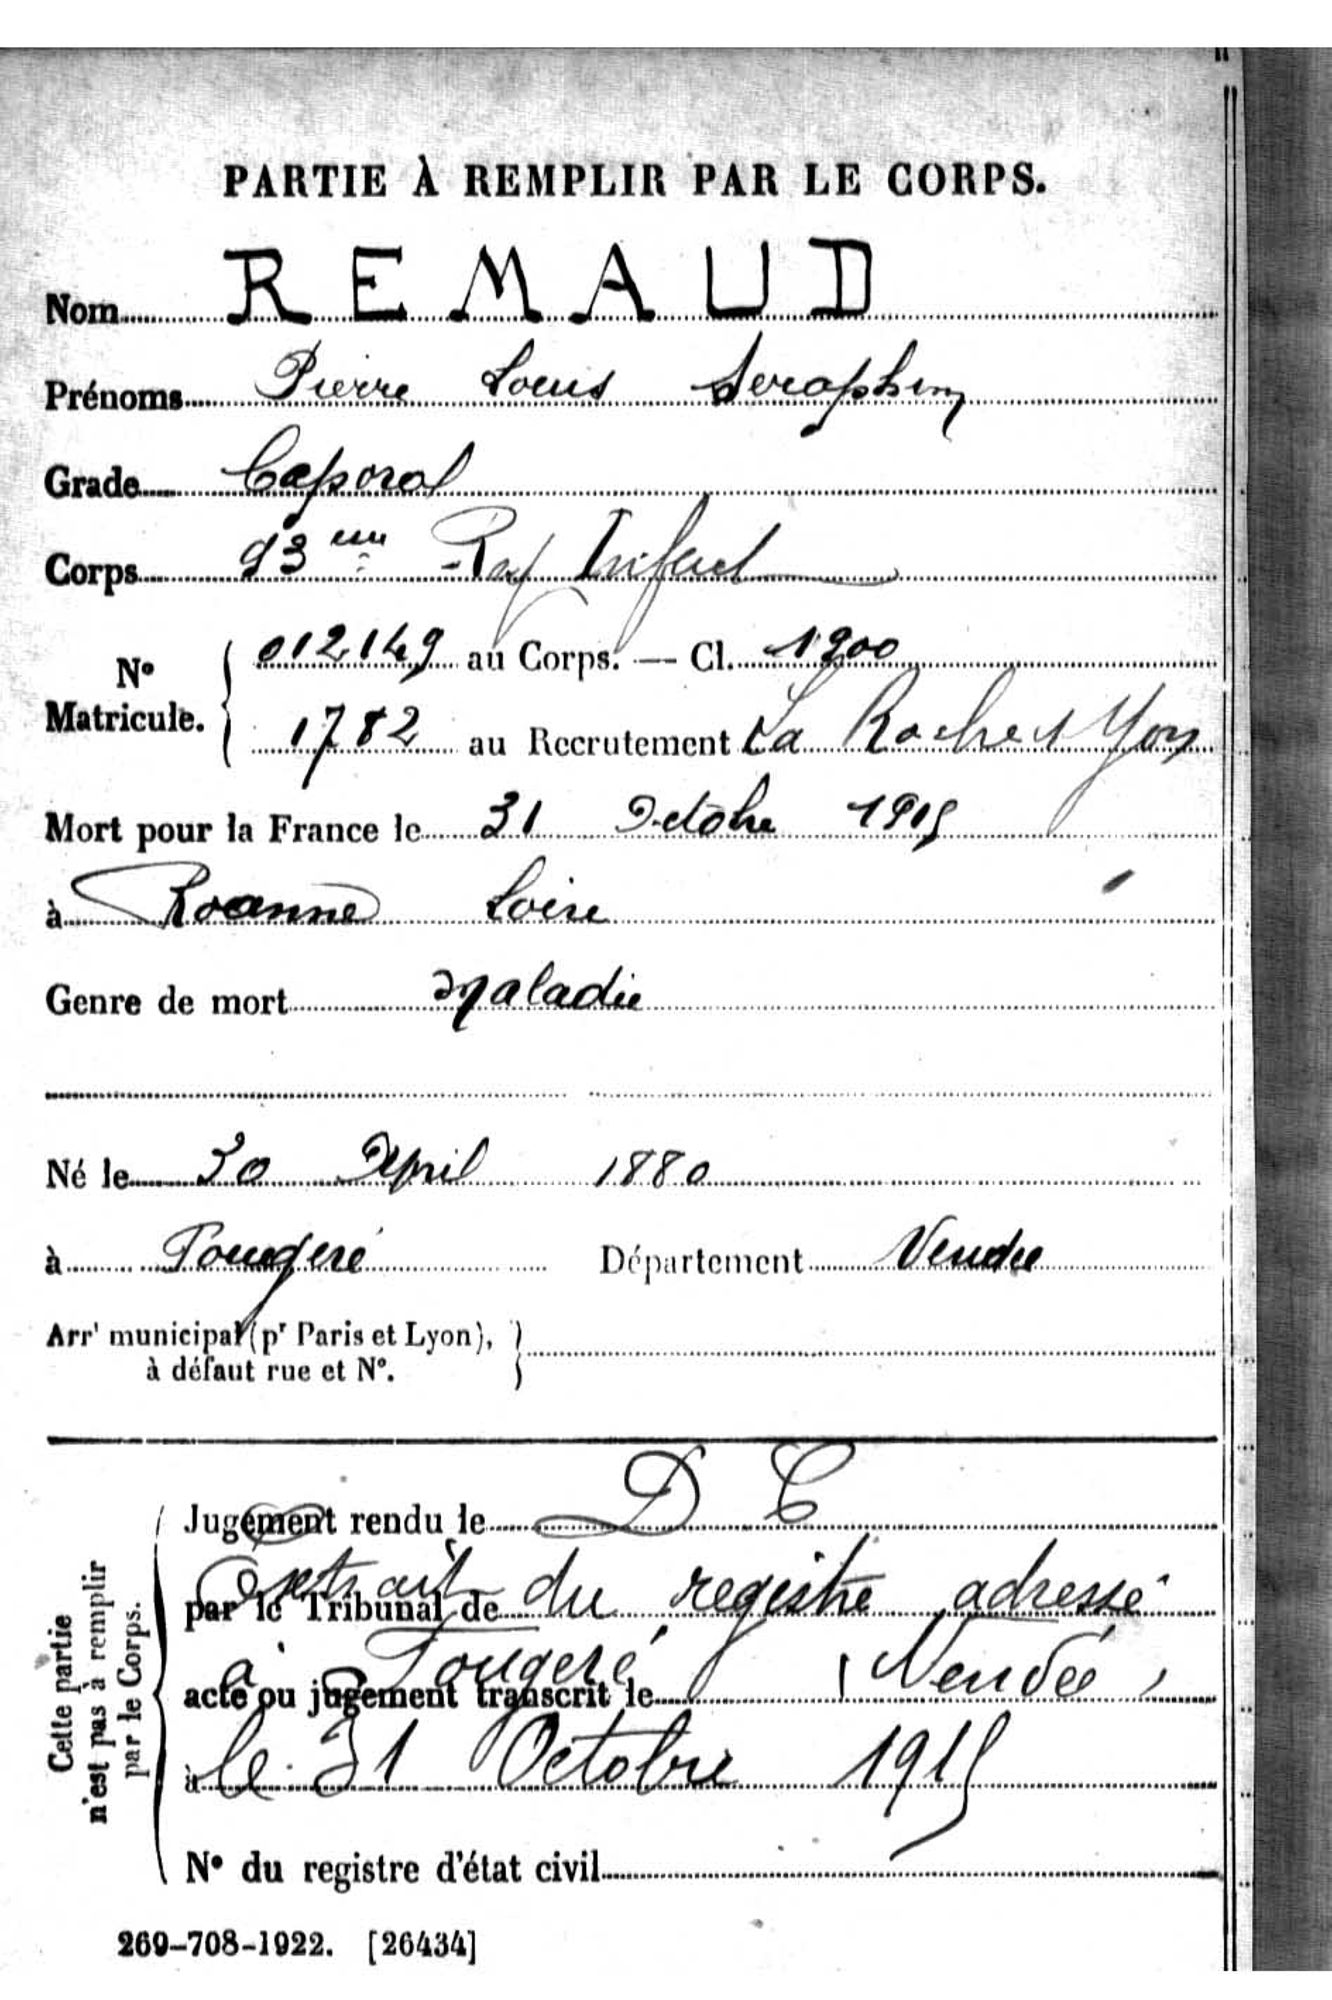 PARTIE À REMPLIR PAR LE CORPS.
Nom REMAUD
Prénoms Pierre Louis Seraphin
Grade Caporal
Corps 93 eme Reg Infant
N° Matricule. 012149 au Corps. — Cl. 1900
1782 au Recrutement La Roche s Yon
Mort pour la France le 31 Octobre 1915
à Roanne Loire
Genre de mort Maladie
Né le 30 April 1880
à Fougeré Département Vendée
Arrt municipal (pr Paris et Lyon),
à défaut rue et N°.
Cette partie
n'est pas à remplir
par le Corps.
Jugement rendu le D C
par le Tribunal de
Extrait du registre adressé
acte ou jugement transcrit le
à Fougeré (Vendée)
à le 31 Octobre 1915
N° du registre d'état civil
269-708-1922. [26434]